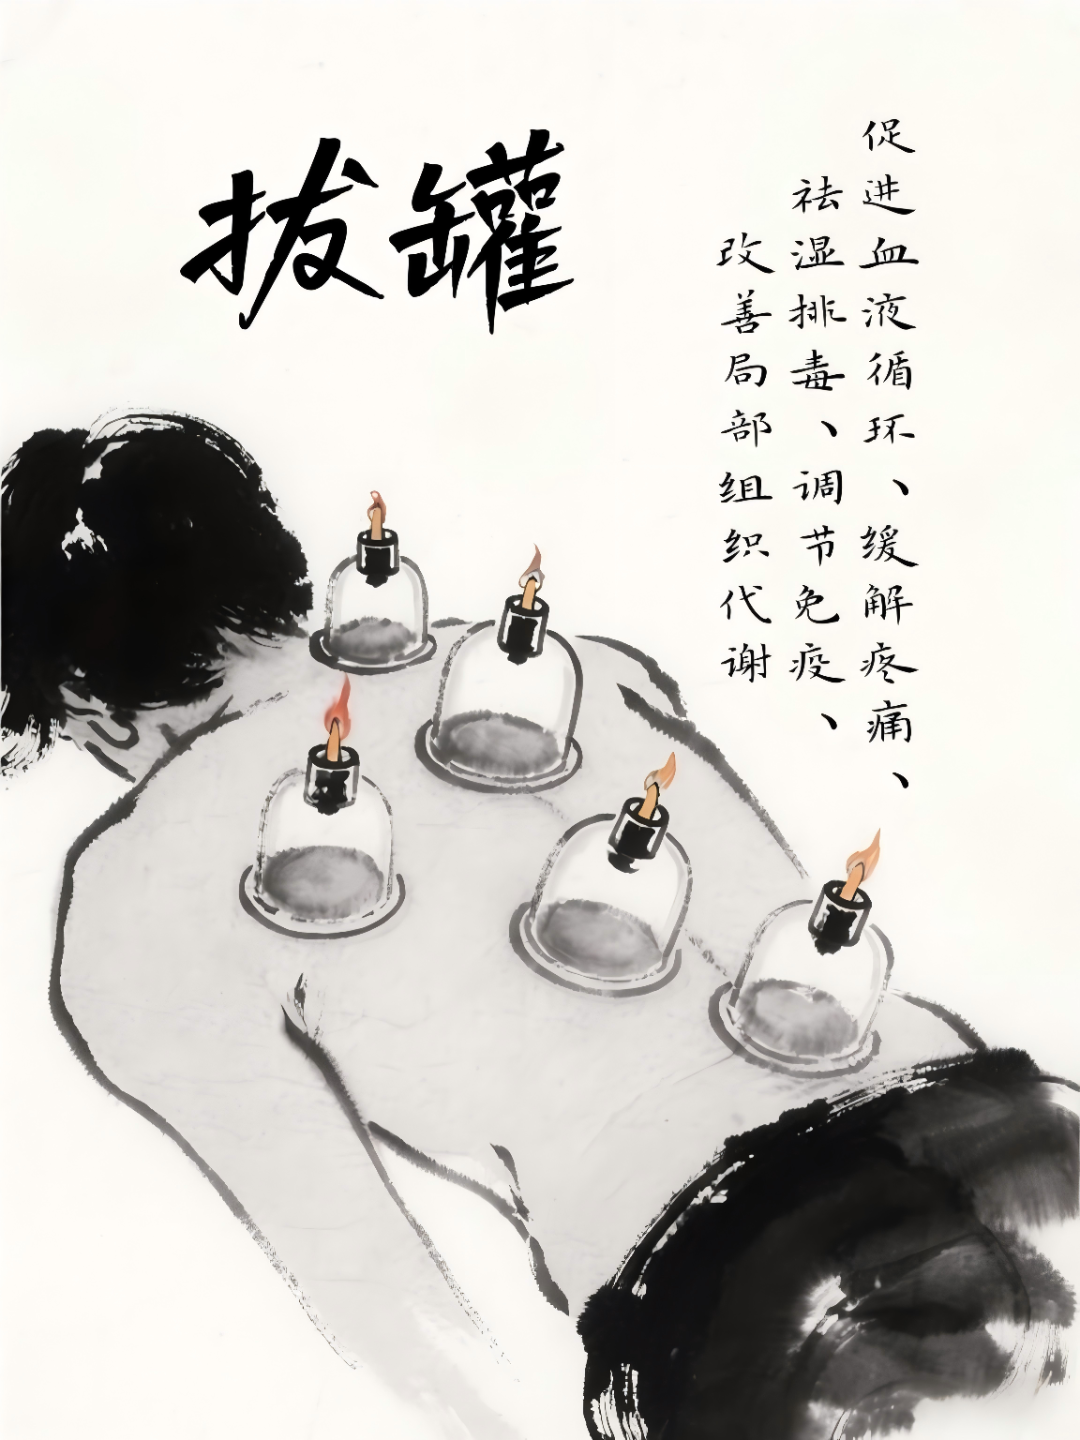 拔罐
促进血液循环、缓解疼痛、
祛湿排毒、调节免疫、
改善局部组织代谢